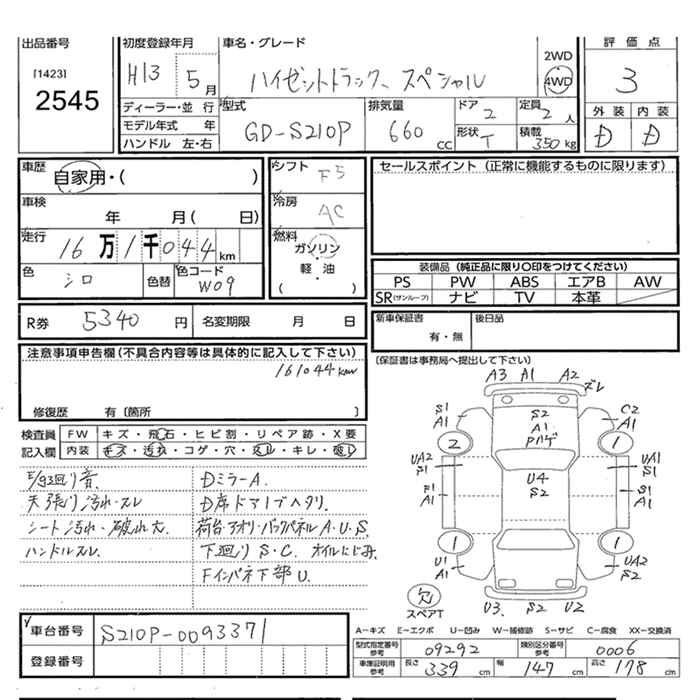 出品番号
[1423]
2545
初度登録年月
H13 5月
車名・グレード
ハイゼットトラック スペシャル
2WD
4WD
評価点
3
外装 内装
D D
ディーラー・並行
モデル年式 年
ハンドル 左・右
型式
GD-S210P
排気量
660 cc
ドア 2
形状 T
定員 2人
積載 350kg
車歴
自家用・( )
車検
年 月( 日)
走行
16万1千044km
色
シロ
色替
色コード
W09
シフト
F5
冷房
AC
燃料
ガソリン
軽・油
( )
セールスポイント(正常に機能するものに限ります)
装備品(純正品に限り○印をつけてください)
PS PW ABS エアB AW
SR(サンルーフ) ナビ TV 本革
R券 5340円 名変期限 月 日
新車保証書
有・無
後日品
(保証書は事務局へ提出して下さい)
注意事項申告欄(不具合内容等は具体的に記入して下さい)
161044km
修復歴 有〔箇所 〕
検査員 FW キズ・飛石・ヒビ割・リペア跡・X要
記入欄 内装 キズ・汚れ・コゲ・穴・スレ・キレ・破れ
天張り汚れ・スレ
シート汚れ・破れ大.
ハンドルスレ.
DミラーA.
荷台・アオリ・バックパネルA.U.S.
下廻りS・C. オイルにじみ.
Fインパネ下部U.
A3 A1 A2
ズレ
S1
A1
C2
A1
S2
A1
2
1
UA2
S1
UA1
S1
U4
S2
F1
A1
S1
A1
1
1
U1
A1
UA2
S2
欠
スペアT
U3. S2 U2
車台番号 S210P-0093371
登録番号
A-キズ E-エクボ U-凹み W-補修跡 S-サビ C-腐食 XX-交換済
型式指定番号 参考 09292 類別区分番号 参考 0006
車庫証明用 参考 長さ 339 cm 幅 147 cm 高さ 178 cm